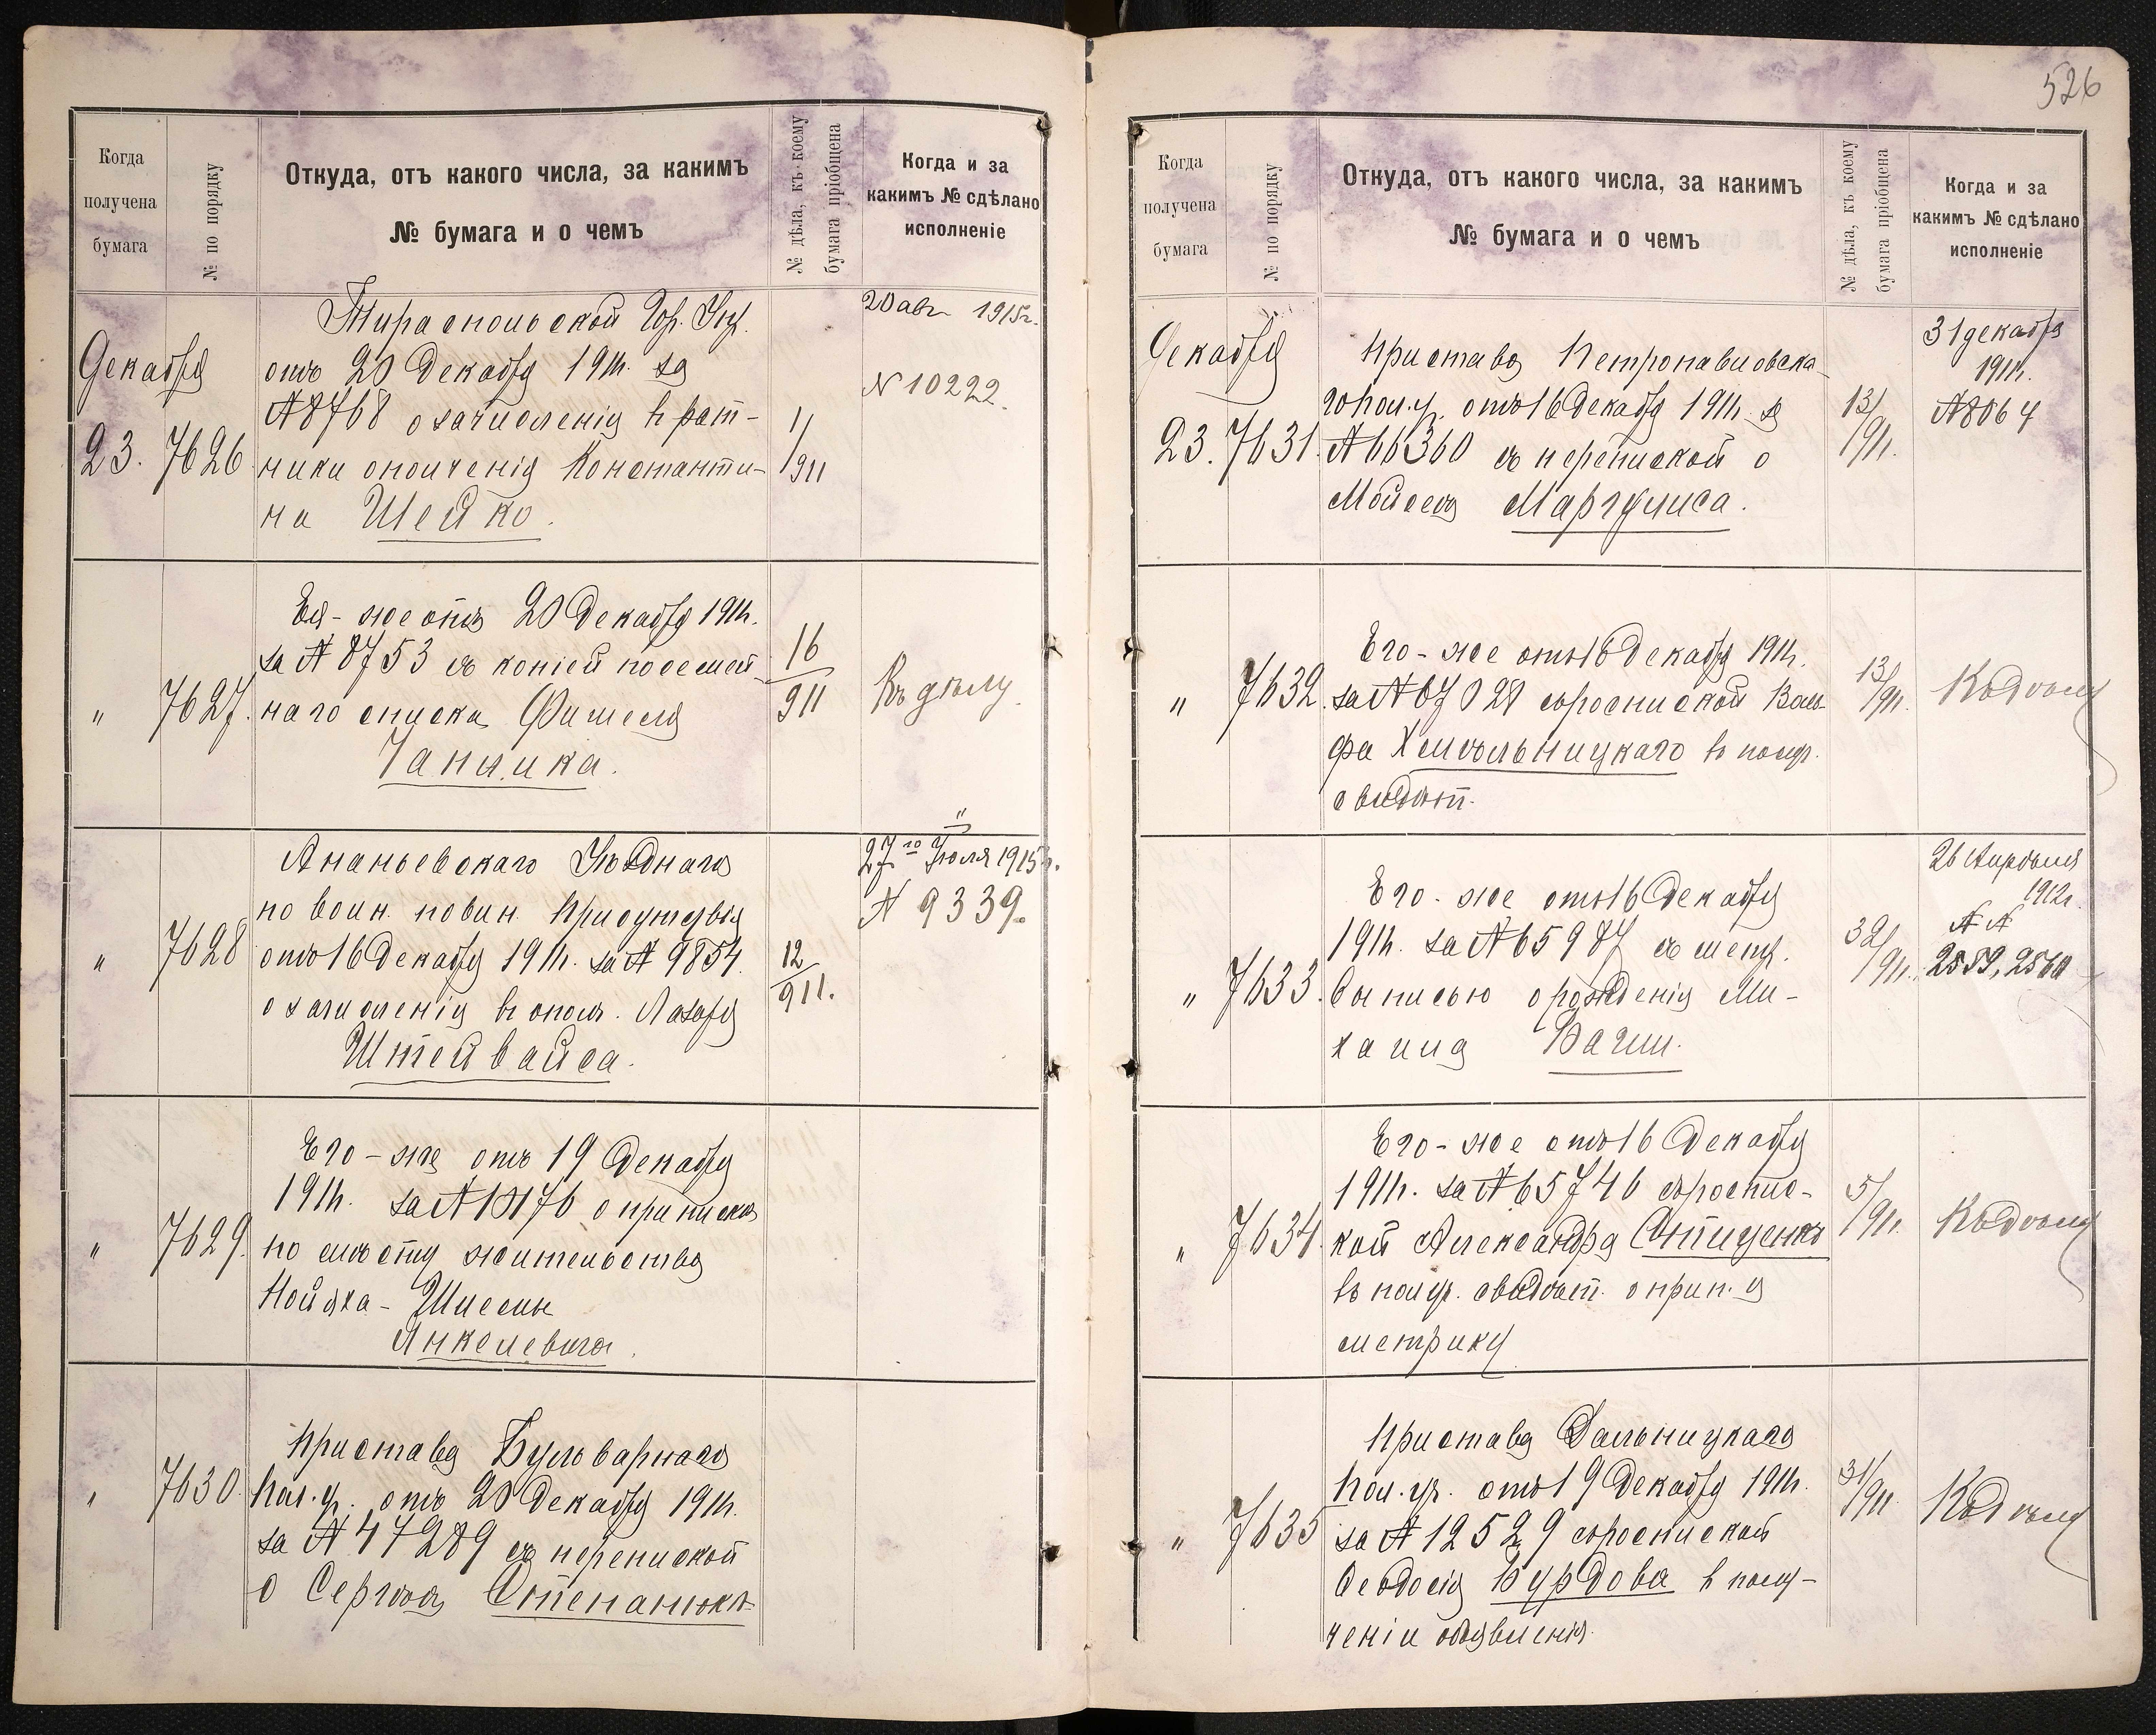 Когда
получена
бумага
№ по порядку
Откуда, отъ какого числа, за какимъ
№ бумага и о чемъ
№ дѣла, къ коему
бумага пріобщена
Когда и за
какимъ № сдѣлано
исполненіе
Декабря
23.
7626
Тираспольской Гор. Упр.
отъ 20 Декабря 1911г. за
№ 8768 о зачисленіи в рат-
ники ополченія Константи-
на Шейко.
1/911
20 авг 1915г.
№ 10222.
"
7627.
Ея-же отъ 20 Декабря 1911г.
за № 8753 съ копіей посемей-
наго списка Фишеля
16/911
Къ дѣлу.
"
7628
Ананьевскаго Уѣзднаго
по воин. повин. Присутствія
отъ 16 Декабря 1911г. за № 9854
о зачисленіи в опол. Лазаря
Штейвайса.
12/911.
27го Іюля 1915г.
№ 9339.
"
7629.
Его-же отъ 19 Декабря
1911г. за № 10176 о припискѣ
по мѣсту жительства
Нойаха-Шиссы
Янкелевича.
"
7630.
Пристава Бульварнаго
Пол. уч. отъ 20 Декабря 1911г.
за № 47289 съ перепиской
о Сергѣѣ Степанюкѣ
526
Когда
получена
бумага
№ по порядку
Откуда, отъ какого числа, за какимъ
№ бумага и о чемъ
№ дѣла, къ коему
бумага пріобщена
Когда и за
какимъ № сдѣлано
исполненіе
Декабря
23.
7631.
Пристава Петропавловска-
го Пол. уч. отъ 16 Декабря 1911г. за
№ 66360 съ перепиской о
Мойсеѣ Маргулиса.
13/911.
31 декабря
1911г.
№ 8064
"
7632.
Его-же отъ 16 Декабря 1911г.
за № 67028 съ роспиской Воль-
фа Хмѣльницкаго в получ.
свидѣт.
13/911.
Къ дѣлу
"
7633.
Его-же отъ 16 Декабря
1911г. за № 65987 съ метр.
выписью о рожденіи Ми-
хаила
32/911.
26 Апрѣля
1912г.
№ №
2559, 2560
"
7634.
Его-же отъ 16 Декабря
1911г. за № 65746 съ роспис-
кой Александра
въ получ. свидѣт. о прип. и
метрику
5/911.
Къ дѣлу
"
7635
Пристава Дальницкаго
Пол. уч. отъ 19 Декабря 1911г.
за № 12529 съ роспиской
Феодосія Бурдова в полу-
ченіи объявленія.
31/911
Къ дѣлу